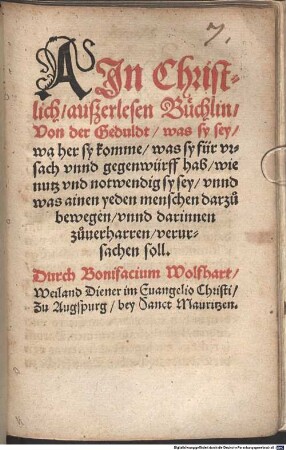 7.
AIn Christ-
lich/außerlesen Büchlin/
Von der Geduldt/ was sy sey/
wa her sy komme/ was sy für vr-
sach vnnd gegenwürff hab/ wie
nutz vnd notwendig sy sey/ vnnd
was ainen yeden menschen darzů
bewegen/ vnnd darinnen
zůuerharren/ verur-
sachen soll.
Durch Bonifacium Wolfhart/
Weiland Diener im Euangelio Christi/
Zu Augspurg/ bey Sanct Mauritzen.